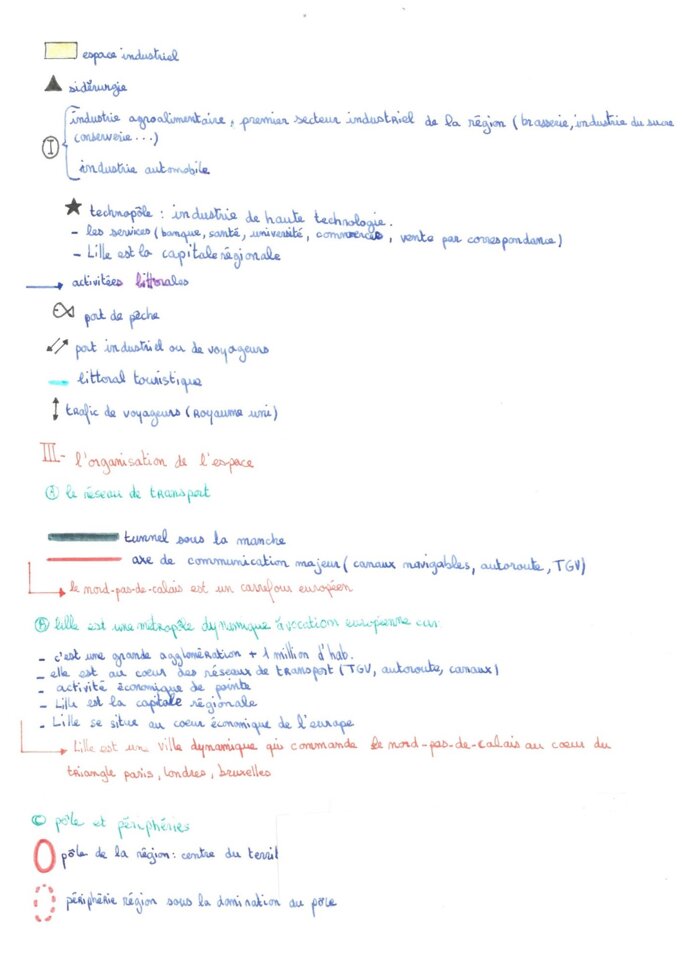 espace industriel
sidérurgie
I
industrie agroalimentaire, premier secteur industriel de la région (brasserie, industrie du sucre
conserverie...)
industrie automobile
technopôle : industrie de haute technologie.
- les services (banque, santé, université, commerce, vente par correspondance)
- Lille est la capitale régionale
activitées littorales
port de pêche
port industriel ou de voyageurs
littoral touristique
trafic de voyageurs (Royaume uni)
III- l'organisation de l'espace
le réseau de transport
tunnel sous la manche
axe de communication majeur (canaux navigables, autoroute, TGV)
le nord-pas-de-calais est un carrefour européen
B lille est une métropole dynamique à vocation européenne car:
- c'est une grande agglomération + 1 million d'hab.
- elle est au coeur des réseaux de transport (TGV, autoroute, canaux)
- activité économique de pointe
- Lille est la capitale régionale
- Lille se situe au coeur économique de l'europe
Lille est une ville dynamique qui commande le nord-pas-de-Calais au coeur du
triangle paris, londres, bruxelles
C pôle et périphéries
pôle de la région : centre du territ
périphérie région sous la domination du pôle